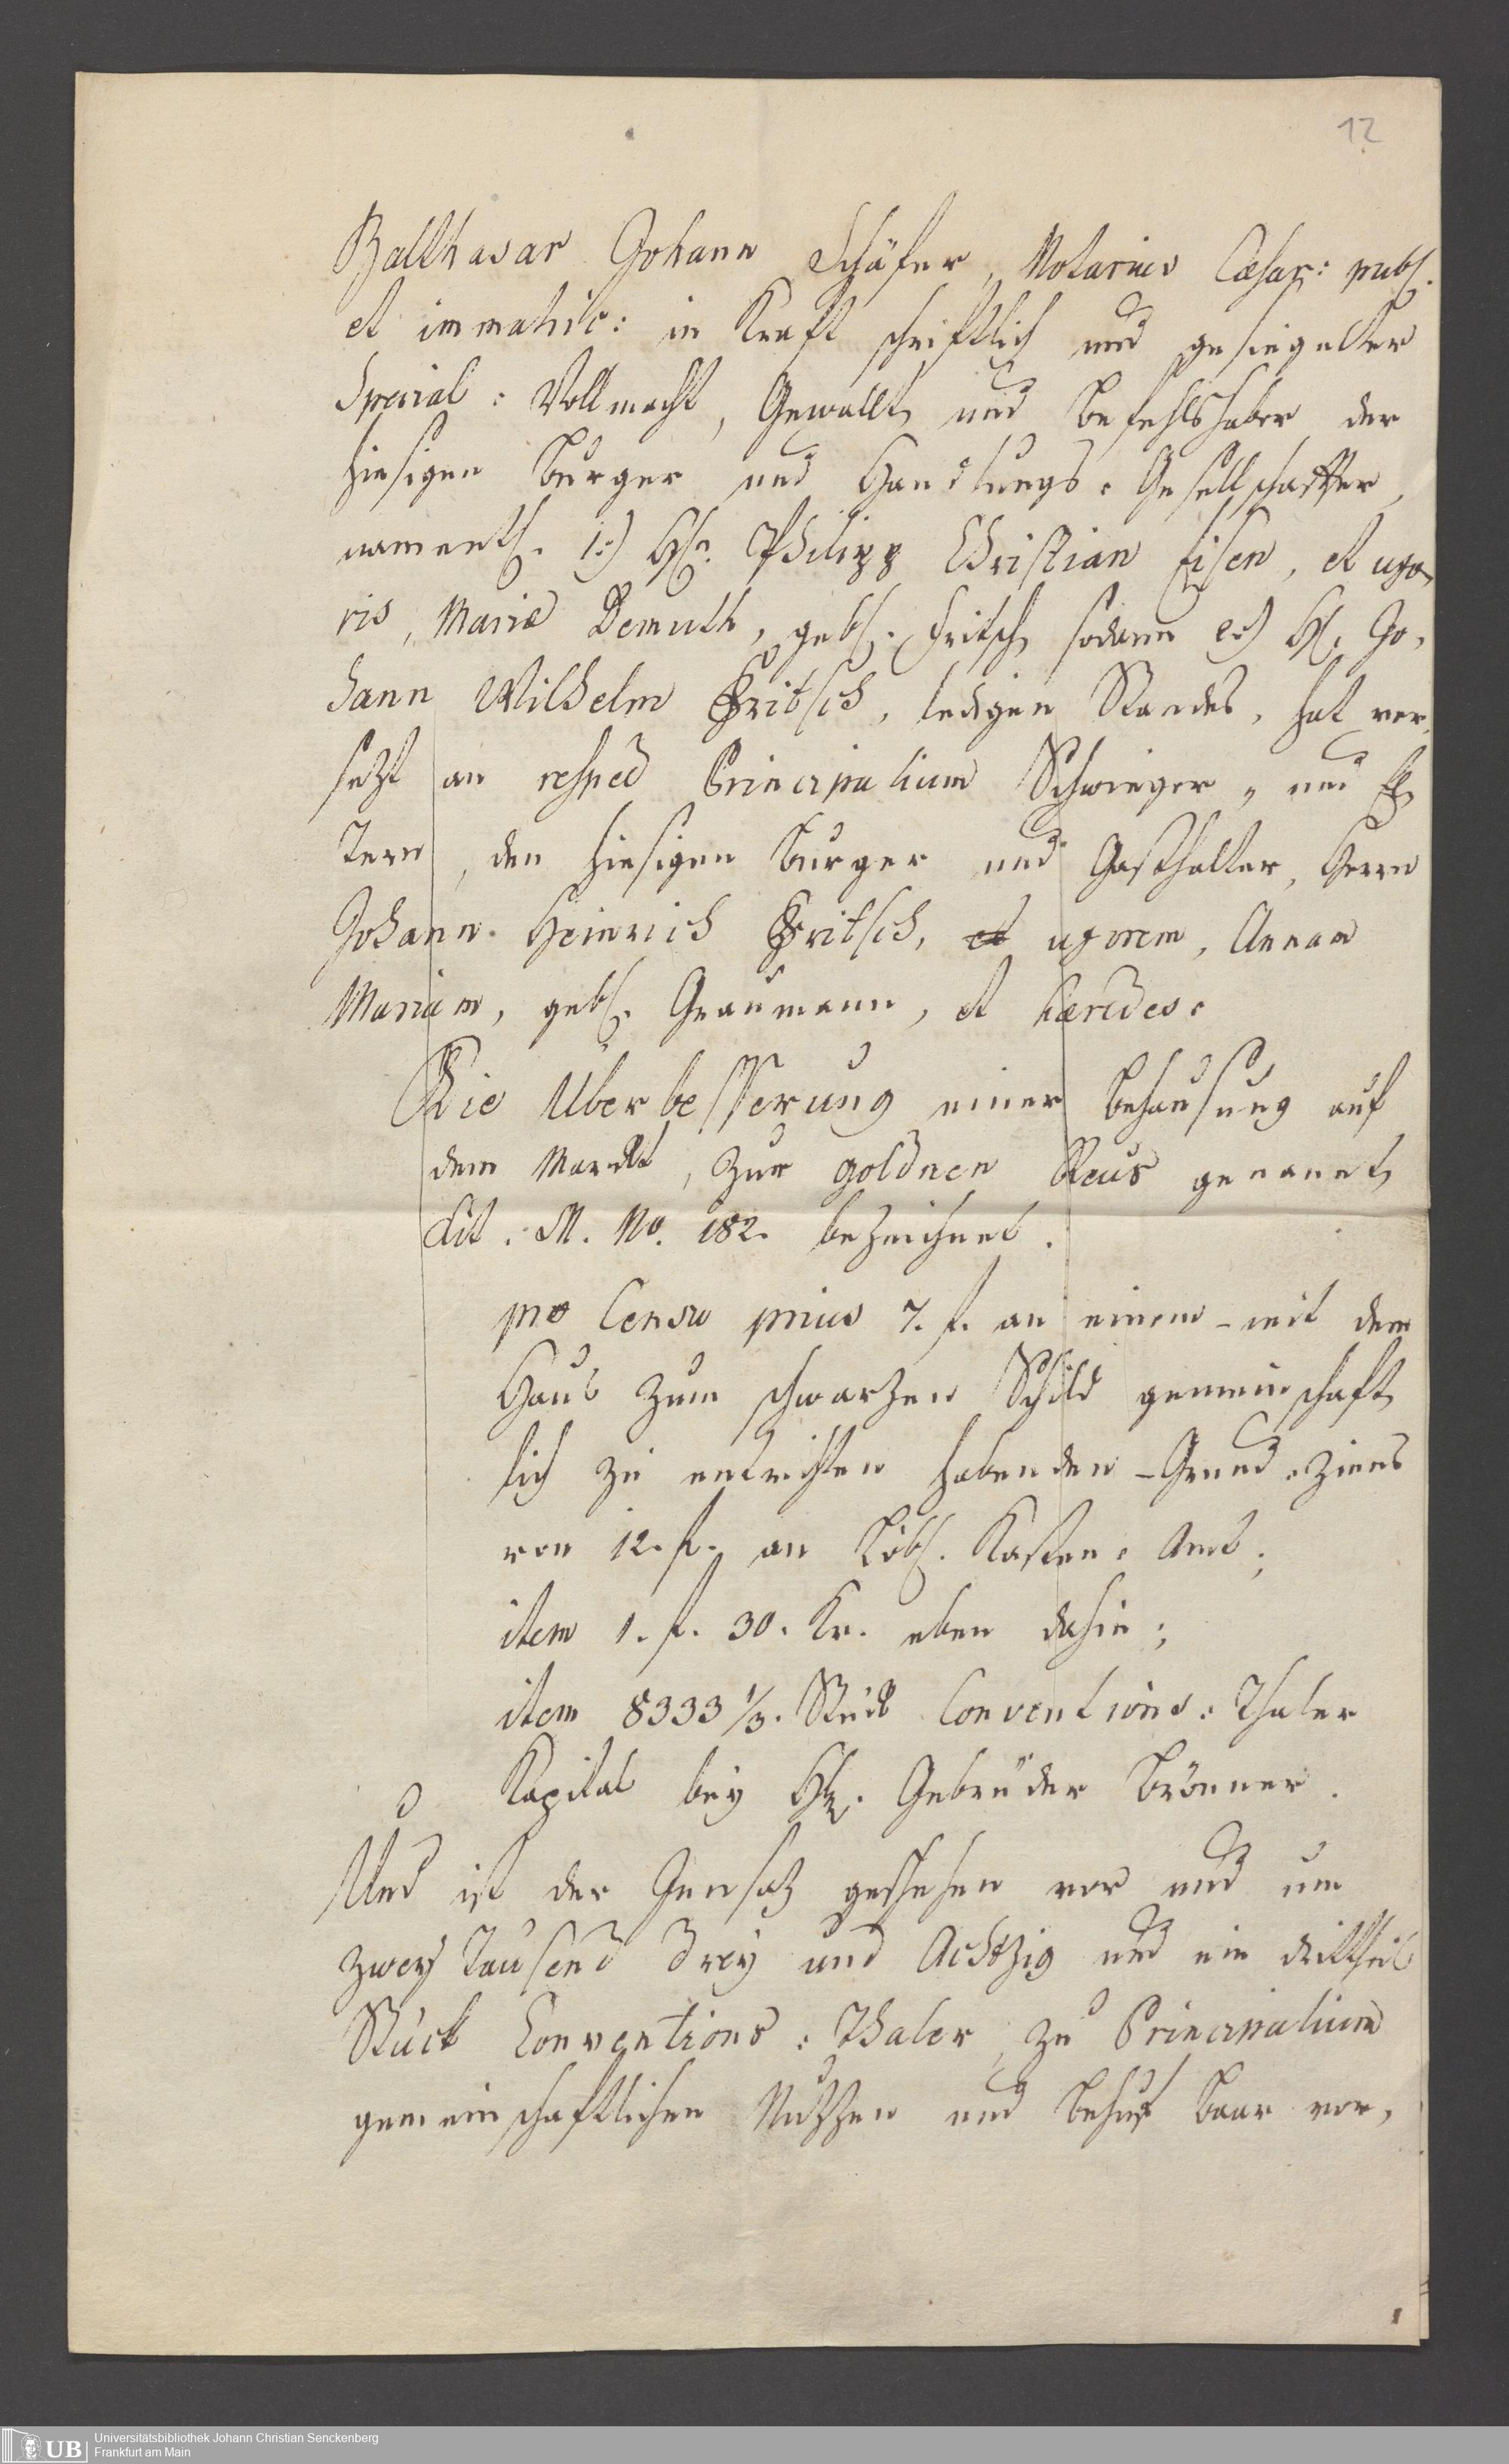 12
Balthasar Johann Schäfer, Notarius Cæsar: publ.
et immatric: in Kraft schriftlich und gesiegelter
Special: Vollmacht, Gewalt, und Befehlshaber der
hiesigen Burger und Handlungs-Gesellschafter,
namentl. 1.) H. Philipp Christian Eisen, et uxo,
ris, Mariæ Demuth, gebl. Fritsch, sodann 2.) H. Jo,
hann Wilhelm Fritsch, ledigen Standes, hat ver,
sezt an respect Principalium Schwieger, und El,
tern, den hiesigen Burger und Gasthalter, Herrn
Johann Heinrich Fritsch, et uxorem, Annam
Mariam, gebl. Graumann, et hæredes.
Die Überbesserung einer Behausung auf
dem Markt, zur goldnen Reus genannt,
Lit. M. No. 182. bezeichnet.
pro Censu prius 7. f. an einem - mit dem
Haus zum schwarzen Schild gemeinschaft,
lich zu entrichten habenden - Grund-zinns
von 12. f. an Löbl. Kasten-Amt;
item 1. f. 30. Kr. eben dahin;
item 8333 1/3. Stück Conventions: Thaler
Kapital bey H. Gebrüder Brönner.
Und ist der Jensatz geschehen vor und um
zwey Tausend drey und Achtzig und ein drittheil
Stück Conventions: Thaler, zu Principalium
gemeinschaftlichen Nutzen und Behuf baar vor,
1
UB
Universitätsbibliothek Johann Christian Senckenberg
Frankfurt am Main